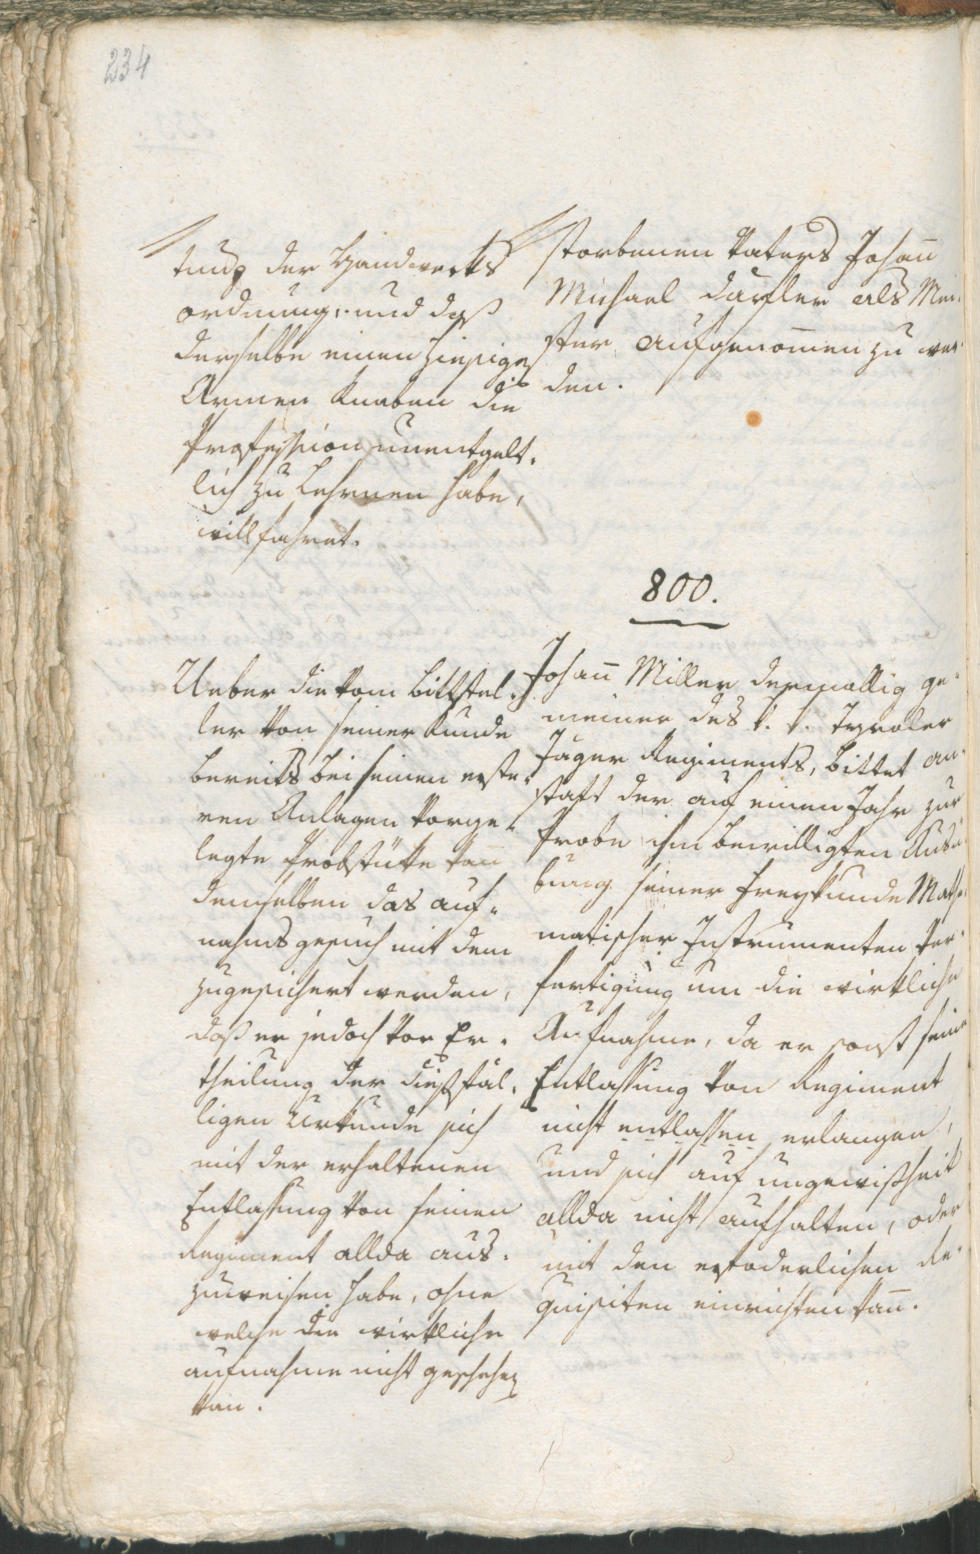 234
tung der Handwerks
ordnung, und daß
derselbe einen hiesigen
Armen Knaben die
Profession unentgelt-
lich zu lehrnen habe,
willfahret.
storbenen Vaters Johann
Michael Daxler als Mei-
ster aufgenommen zu wer-
den.
800.
Ueber die vom Bittstel-
ler von seiner Kunde
bereits bei seinen erste-
ren Anlagen vorge-
legte Probstükke kann
demselben das auf-
nahmsgesuch mit dem
zugesichert werden,
daß er jedoch vor Er-
theilung der dießfäl-
ligen Urkunde sich
mit der erhaltenen
Entlassung von seinen
Regiment allda aus-
zuweisen habe, ohne
welche die wirkliche
aufnahme nicht geschehen
kan.
Johann Miller dermallig ge-
meiner des k. k. Tyroler
Jäger Regiments, bittet an-
statt der auf einen Jahr zur
Probe ihm bewilligten Ausü-
bung seiner Freykunde Mathe-
matischer Instrumenten Ver-
fertigung um die wirkliche
Aufnahme, da er sonst seine
Entlassung von Regiment
nicht entlassen erlangen,
und sich auf ungewißheit
allda nicht aufhalten, oder
mit den erfoderlichen Re-
quisiten einrichten kann.